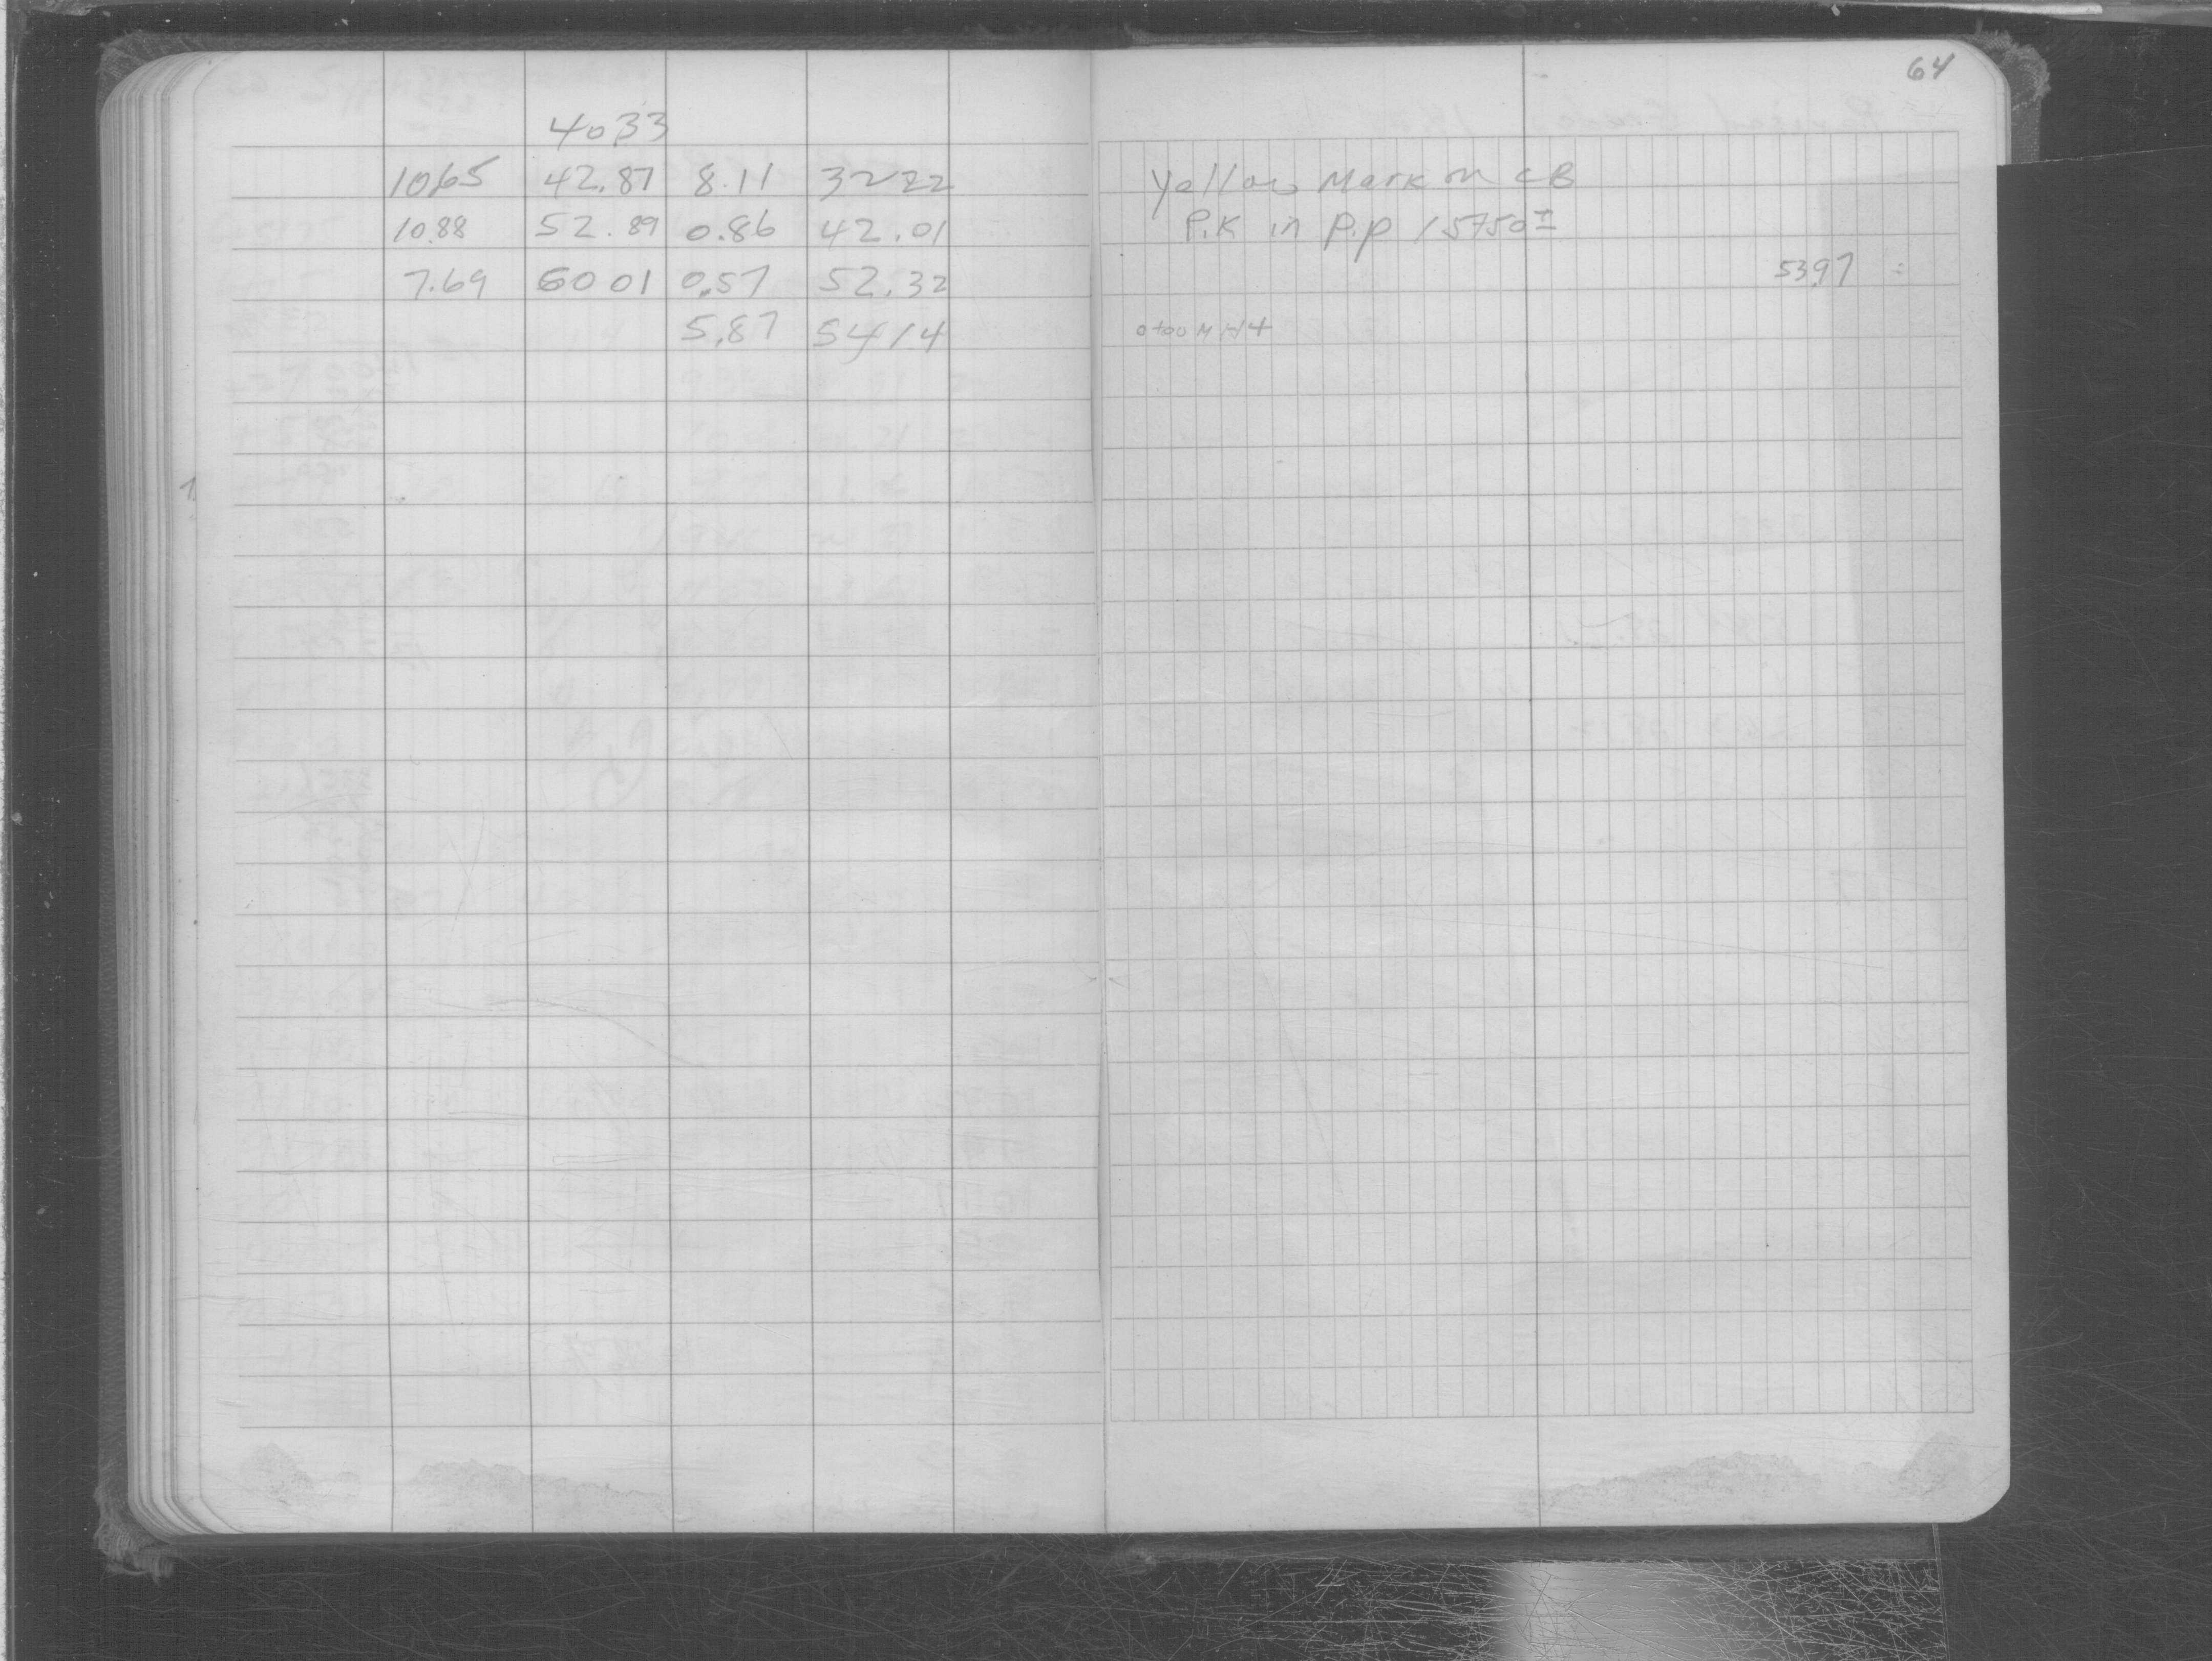 64
4033
1065 42.87 8.11 3222 Yellow Mark on CB
10.88 52.89 0.86 42.01 P.K in P.P 15750±
7.69 6001 0.57 52.32 53.97
5.87 5414 0+00 MH4